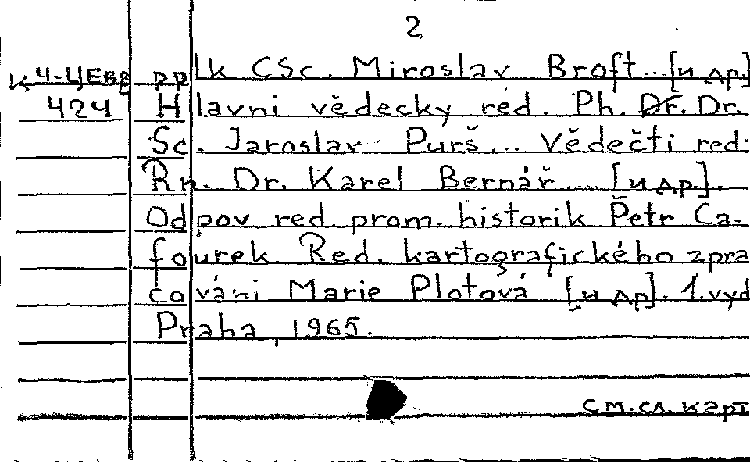 2
к Ч-ЦЕВР пplk CSc. Miroslav Broft... [и др]
424 Hlavni vědecky red. Ph. Dr. Dr.
Sc. Jaroslav Purš... Vědečti red.
Rn. Dr. Karel Bernář... [и др].
Odpov red. prom. historik Petr Ca-
fourek Red. kartografického zpra
cováni Marie Plotová [и др]. 1. vyd
Praha, 1965.
см. сл. карт